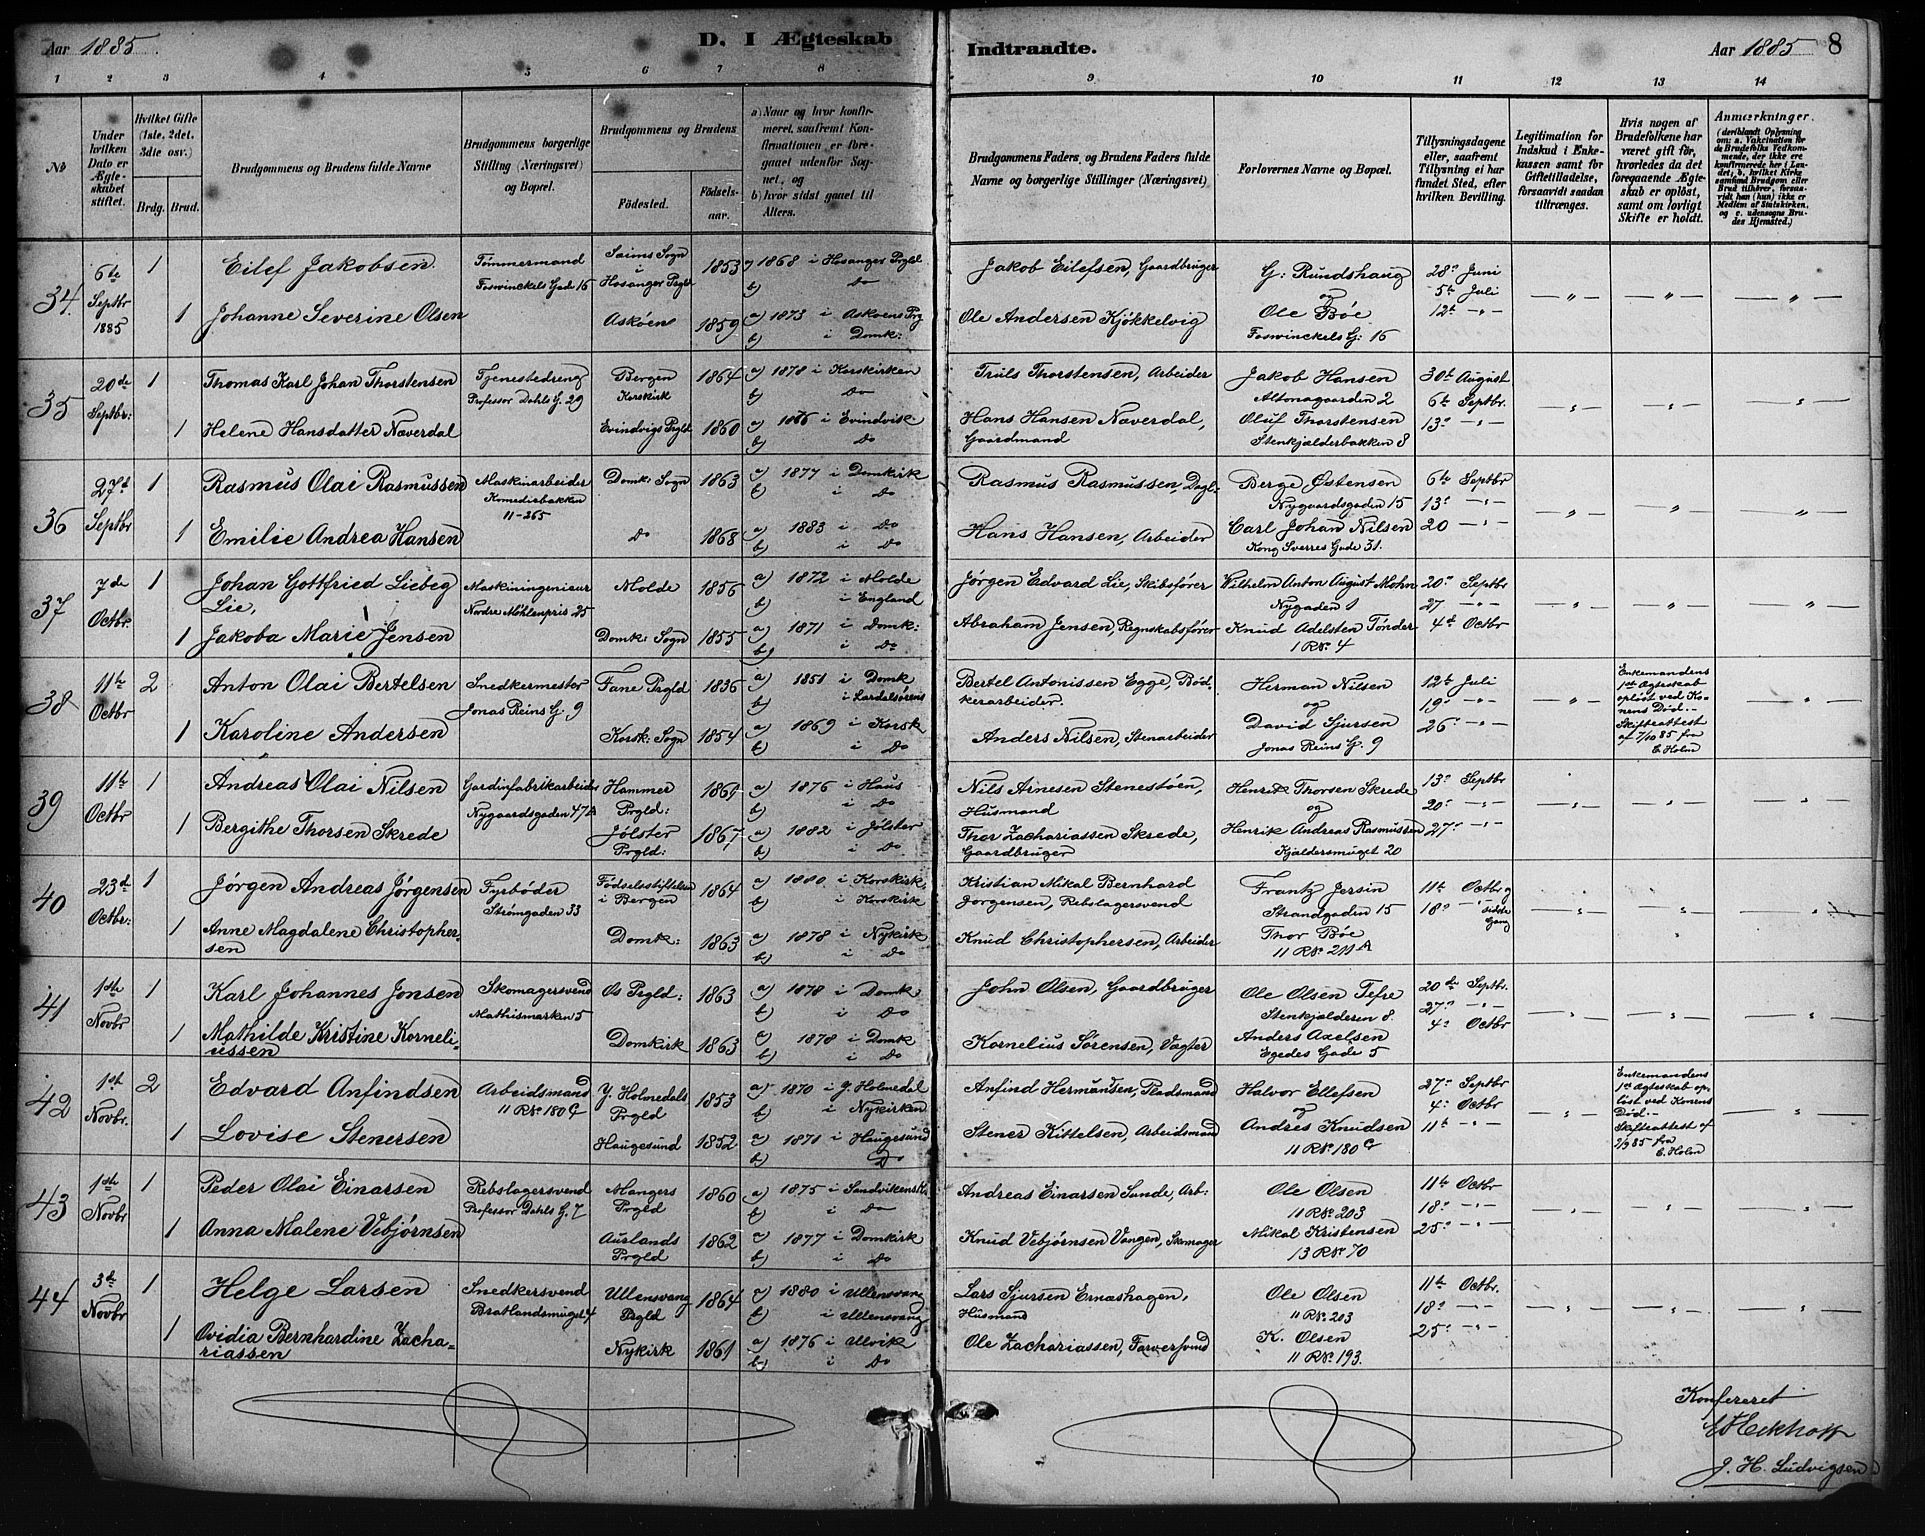 Aar 1885.
D. I Ægteskab
Indtraadte.
Aar 1885 8
1 2 3 4 5 6 7 8
9 10 11 12 13 14
No
Under hvilken Dato er Ægteskabet stiftet.
Hvilket Gifte (1ste, 2det, 3die osv.)
Brdg. Brud.
Brudgommens og Brudens fulde Navne
Brudgommens borgerlige Stilling (Næringsvei) og Bopæl.
Brudgommens og Brudens
Fødested.
Fødselsaar.
a) Naar og hvor konfirmeret, saafremt Konfirmationen er foregaaet udenfor Sognet, og
b) hvor sidst gaaet til Alters.
Brudgommens Faders og Brudens Faders fulde Navne og borgerlige Stillinger (Næringsvei)
Forlovernes Navne og Bopæl.
Tillysningsdagene eller, saafremt Tillysning ei har fundet Sted, efter hvilken Bevilling.
Legitimation for Indskud i Enkekassen samt for Giftetilladelse, forsaavidt saadan tiltrænges.
Hvis nogen af Brudefolkene har været gift før, hvorledes da det foregaaende Ægteskab er opløst, samt om lovligt Skifte er holdt.
Anmærkninger.
34. 6te Septbr 1885 1 Eilef Jakobsen. Tømmermand 1853 a) 1868 i Hosanger Prgld Jakob Eilefsen, Gaardbruger G. Rundshaug 28de Juni
Foswinckels Gade 16 Hosanger Prgld b) Do og 5te Juli
1 Johanne Severine Olsen Askøen 1859 a) 1873 i Askøens Prg Ole Andersen Kjøkkelvig Ole Bøe 12te
b) i Domk: Foswinckels G: 16
35 20de Septbr: 1 Thomas Karl Johan Thorstensen Tjenestedreng Bergen 1864 a) 1878 i Korskirken Truls Thorstensen, Arbeider Jakob Hansen 30te August
Professor Dahls G. 29 Korskirk b) Do Altonagaarden 2 6te Septbr.
1 Helene Hansdatter Næverdal Evindvigs Prgld 1860 a) 1876 i Evindvik Hans Hansen Næverdal, Oluf Thorstensen 13de
b) Do Gaardmand Stenkjælderbakken 8
36 27de Septbr 1 Rasmus Olai Rasmussen Maskinarbeider Domk: Sogn 1863 a) 1877 i Domkirk Rasmus Rasmussen, Dagl: Berge Østensen 6te Septbr
Komediebakken 11-265 b) i Do Nygaardsgaden 15 13de
1 Emilie Andrea Hansen Do 1868 a) 1883 i Do Hans Hansen, Arbeider Carl Johan Nilsen 20
b) i Do Kong Sverres Gade 31.
37 7de Octbr. 1 Johan Gottfried Liebeg Lie, Maskiningeniør Molde 1856 a) 1872 i Molde Jørgen Edvard Lie, Skibsfører Wilhelm Anton August Mohn 20de Septbr
Nordre Møhlenpris 25 b) i England Nygaden 1 27
1 Jakoba Marie Jensen Domk: Sogn 1855 a) 1871 i Domk: Abraham Jensen, Regnskabsfører Knud Adelsten Tønder 4de Octbr
b) i Do 1 RNo. 4
38 11te Octbr 2 Anton Olai Bertelsen Snedkermester Fane Prgld 1836 a) 1851 i Domk Bertel Antonissen Egge, Bødkerarbeider. Herman Nilsen 12te Juli Enkemandens 1ste Ægteskab opløst ved Konens Død.- Skifteattest af 7/10 85 fra E. Holm
Jonas Reins G. 9 b) i Lærdalsørens og 19de
1 Karoline Andersen Korsk: Sogn 1854 a) 1869 i Korsk Anders Nilsen, Stenarbeider David Sjursen 26de
b) i Do Jonas Reins G. 9
39 11te Octbr 1 Andreas Olai Nilsen Gardinfabrikarbeider Hammer Prgld: 1861 a) 1876 i Haus Nils Arnesen Stenestøen, Husmand Henrik Thorsen Skrede 13de Septbr
Nygaardsgaden 47A b) i Do og 20de
1 Bergithe Thorsen Skrede Jølster Prgld: 1867 a) 1882 i Jølster Thor Zachariassen Skrede, Gaardbruger Henrik Andreas Rasmussen 27de
b) i Do Kjældersmuget 20
40 23de Octbr: 1 Jørgen Andreas Jørgensen Fyrbøder Fødselsstiftelsen i Bergen 1864 a) 1880 i Korskirk Kristian Mikal Bernhard Jørgensen, Rebslagersvend Frantz Jersin 11te Octbr og
Strømgaden 33 b) i Korskirk Strandgaden 15 18de sidste Gang
1 Anne Magdalene Christophersen Domk: 1863 a) 1878 i Nykirk Knud Christophersen, Arbeider Thor Bøe
b) i Do 11 RNo. 211A
41 1ste Novbr 1 Karl Johannes Jonsen Skomagersvend Os Prgld: 1863 a) 1878 i Domk John Olsen, Gaardbruger Ole Olsen Tefre 20de Septbr.
Mathismarken 5 b) i Do Stenkjælderen 8. 27de
1 Mathilde Kristine Korneliussen Domkirk 1863 a) 1878 i Domk Kornelius Sørensen, Vægter Anders Axelsen 4de Octbr
b) i Do Egedes Gade 5
42 1ste Novbr. 2 Edvard Anfindsen Arbeidsmand Y. Holmedals Prgld 1853 a) 1870 i Y. Holmedal Anfind Hermansen, Pladsmand Halvor Ellefsen 27de Septbr Enkemandens 1ste Ægteskab opløst ved Konens Død.- Skifteattest af 2/9 85 fra E. Holm
11 RNo. 180 b) i Nykirken og 4de Octbr
1 Lovise Stenersen Haugesund 1852 a) 1871 i Haugesund Stener Kittelsen, Arbeidsmand Andres Knudsen 11te
b) Do 11 RNo. 180
43 1ste Novbr 1 Peder Olai Einarsen Rebslagersvend Mangers Prgld 1860 a) 1875 i Sandvikens K. Andreas Einarsen Sunde, Arb: Ole Olsen 11te Octbr
Professor Dahls G. 7 b) i Do 11 RNo. 203 18de
1 Anna Malene Vebjørnsen Aurlands Prgld 1862 a) 1877 i Domkirk Knud Vebjørnsen Vangen, Skomager Mikal Kristensen 25de
b) i Do 13 RNo. 70
44 3de Novbr 1 Helge Larsen Snedkersvend Ullensvang Prgld 1864 a) 1880 i Ullensvang Lars Sjursen Ernæshagen, Husmand Ole Olsen 11te Octbr.
Bratlandsmuget 4 b) i Ullensvang 11 RNo. 203 18de
1 Ovidia Bernhardine Zachariassen Nykirk 1861 a) 1876 i Ulvik Ole Zachariassen, Farversvend K. Olsen 25de
b) i Do 11 RNo. 193.
Konfereret
Eckhoff
J. H. Ludvigsen